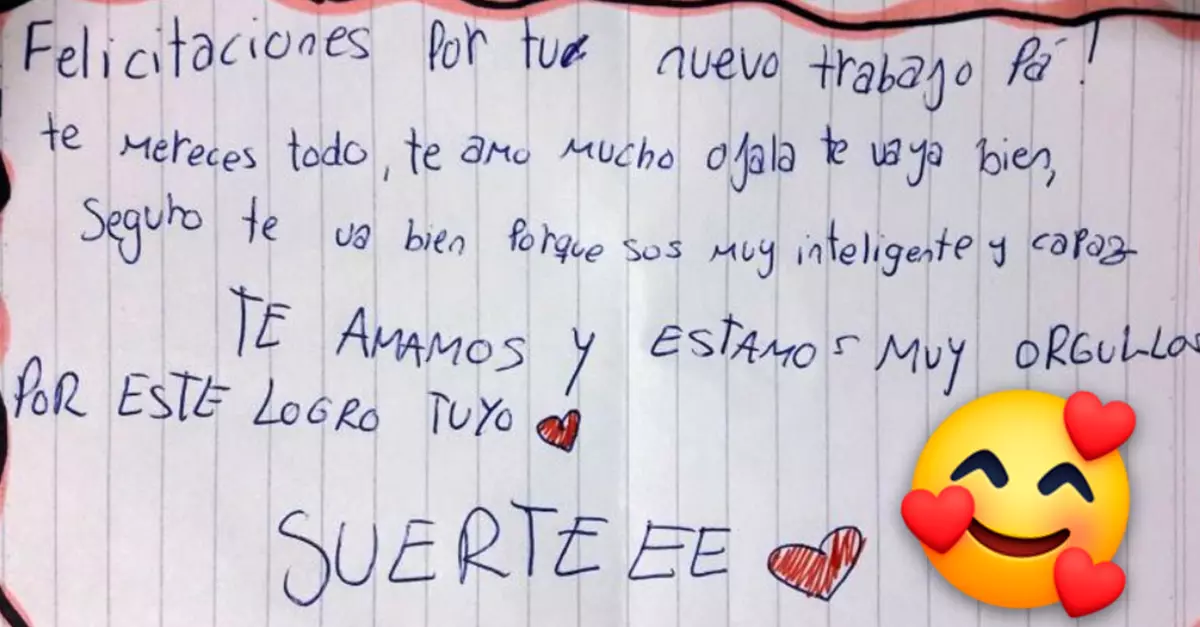 Felicitaciones por tu nuevo trabajo Pá!
te mereces todo, te amo mucho ojala te vaya bien,
Seguro te va bien porque sos muy inteligente y capaz
TE AMAMOS Y ESTAMOS MUY ORGULLOS
POR ESTE LOGRO TUYO
SUERTEEE